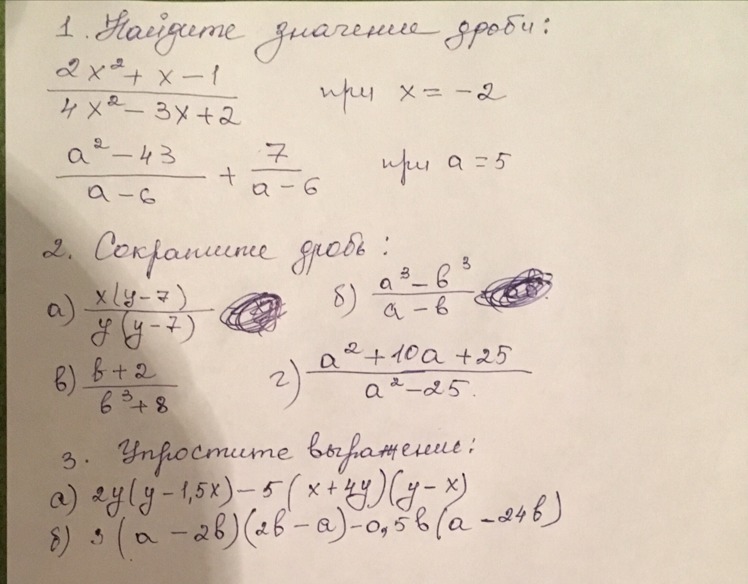 1. Найдите значение дроби:
(2x² + x − 1)/(4x² − 3x + 2) при x = −2
(a² − 43)/(a − 6) + 7/(a − 6) при a = 5
2. Сократите дробь:
а) x(y − 7)/y(y − 7) б) (a³ − b³)/(a − b)
в) (b + 2)/(b³ + 8) г) (a² + 10a + 25)/(a² − 25)
3. Упростите выражение:
а) 2y(y − 1,5x) − 5(x + 4y)(y − x)
б) 3(a − 2b)(2b − a) − 0,5b(a − 24b)